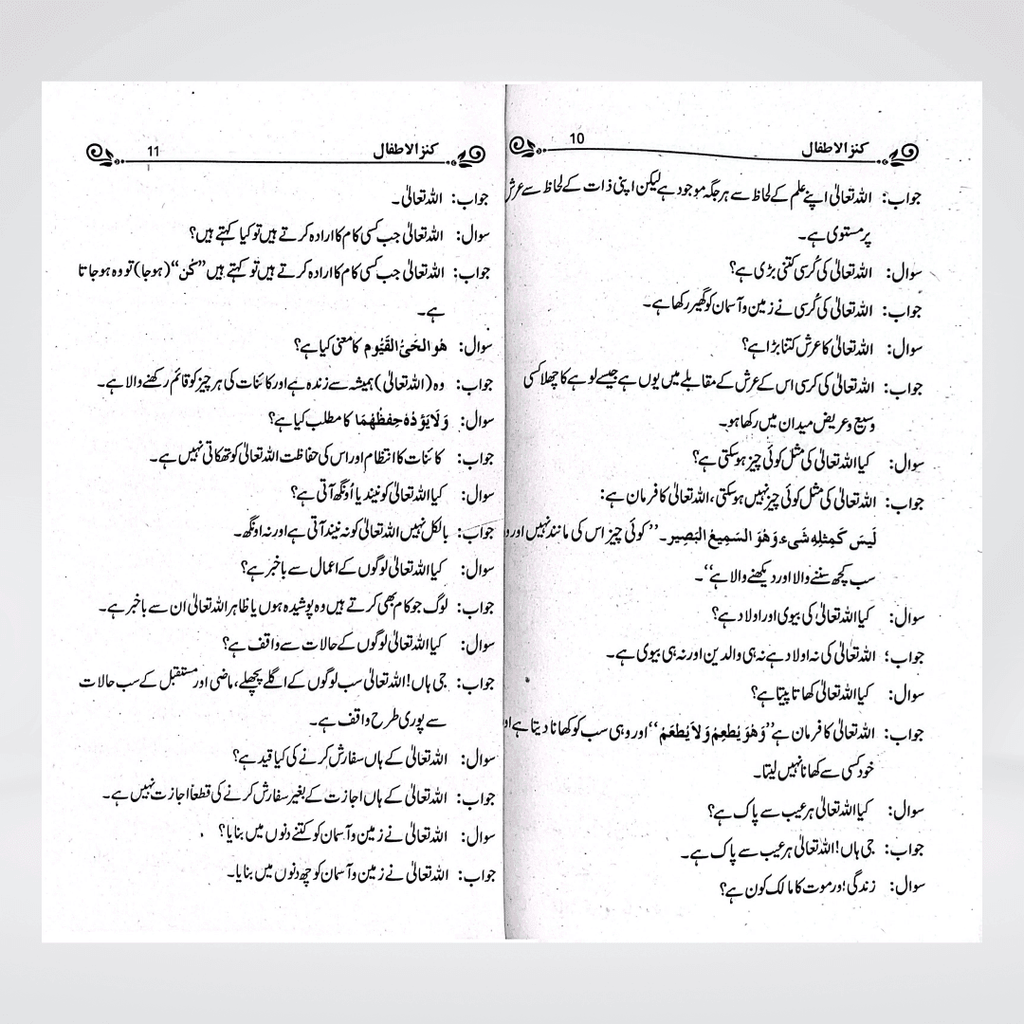 کنز الاطفال 10
جواب: اللہ تعالیٰ اپنے علم کے لحاظ سے ہر جگہ موجود ہے لیکن اپنی ذات کے لحاظ سے عرش
پر مستوی ہے۔
سوال: اللہ تعالیٰ کی کُرسی کتنی بڑی ہے؟
جواب: اللہ تعالیٰ کی کُرسی نے زمین و آسمان کو گھیر رکھا ہے۔
سوال: اللہ تعالیٰ کا عرش کتنا بڑا ہے؟
جواب: اللہ تعالیٰ کی کرسی اس کے عرش کے مقابلے میں یوں ہے جیسے لوہے کا چھلا کسی
وسیع و عریض میدان میں رکھا ہو۔
سوال: کیا اللہ تعالیٰ کی مثل کوئی چیز ہو سکتی ہے؟
جواب: اللہ تعالیٰ کی مثل کوئی چیز نہیں ہو سکتی، اللہ تعالیٰ کا فرمان ہے:
لَیسَ کَمِثلِہٖ شَیء وَھُوَ السَمِیعُ البَصِیر۔ ’’کوئی چیز اس کی مانند نہیں اور و
سب کچھ سننے والا اور دیکھنے والا ہے‘‘۔
سوال: کیا اللہ تعالیٰ کی بیوی اور اولاد ہے؟
جواب: اللہ تعالیٰ کی نہ اولاد ہے نہ ہی والدین اور نہ ہی بیوی ہے۔
سوال: کیا اللہ تعالیٰ کھاتا پیتا ہے؟
جواب: اللہ تعالیٰ کا فرمان ہے ’’وَھُوَ یُطعِمُ وَلاَ یُطعَمُ‘‘ اور وہی سب کو کھانا دیتا ہے او
خود کسی سے کھانا نہیں لیتا۔
سوال: کیا اللہ تعالیٰ ہر عیب سے پاک ہے؟
جواب: جی ہاں! اللہ تعالیٰ ہر عیب سے پاک ہے۔
سوال: زندگی اور موت کا مالک کون ہے؟
کنز الاطفال 11
جواب: اللہ تعالیٰ۔
سوال: اللہ تعالیٰ جب کسی کام کا ارادہ کرتے ہیں تو کیا کہتے ہیں؟
جواب: اللہ تعالیٰ جب کسی کام کا ارادہ کرتے ہیں تو کہتے ہیں ’’کُن‘‘ (ہو جا) تو وہ ہو جاتا
ہے۔
سوال: ھُوَ الحَیُّ القَیُّوم کا معنی کیا ہے؟
جواب: وہ (اللہ تعالیٰ) ہمیشہ سے زندہ ہے اور کائنات کی ہر چیز کو قائم رکھنے والا ہے۔
سوال: وَلَا یَؤدُہٗ حِفظُھُمَا کا مطلب کیا ہے؟
جواب: کائنات کا انتظام اور اس کی حفاظت اللہ تعالیٰ کو تھکاتی نہیں ہے۔
سوال: کیا اللہ تعالیٰ کو نیند یا اُونگھ آتی ہے؟
جواب: بالکل نہیں اللہ تعالیٰ کو نہ نیند آتی ہے اور نہ اونگھ۔
سوال: کیا اللہ تعالیٰ لوگوں کے اعمال سے باخبر ہے؟
جواب: لوگ جو کام بھی کرتے ہیں وہ پوشیدہ ہوں یا ظاہر اللہ تعالیٰ ان سے باخبر ہے۔
سوال: کیا اللہ تعالیٰ لوگوں کے حالات سے واقف ہے؟
جواب: جی ہاں! اللہ تعالیٰ سب لوگوں کے اگلے پچھلے، ماضی اور مستقبل کے سب حالات
سے پوری طرح واقف ہے۔
سوال: اللہ تعالیٰ کے ہاں سفارش کرنے کی کیا قید ہے؟
جواب: اللہ تعالیٰ کے ہاں اجازت کے بغیر سفارش کرنے کی قطعاً اجازت نہیں ہے۔
سوال: اللہ تعالیٰ نے زمین و آسمان کو کتنے دنوں میں بنایا؟
جواب: اللہ تعالیٰ نے زمین و آسمان کو چھ دنوں میں بنایا۔